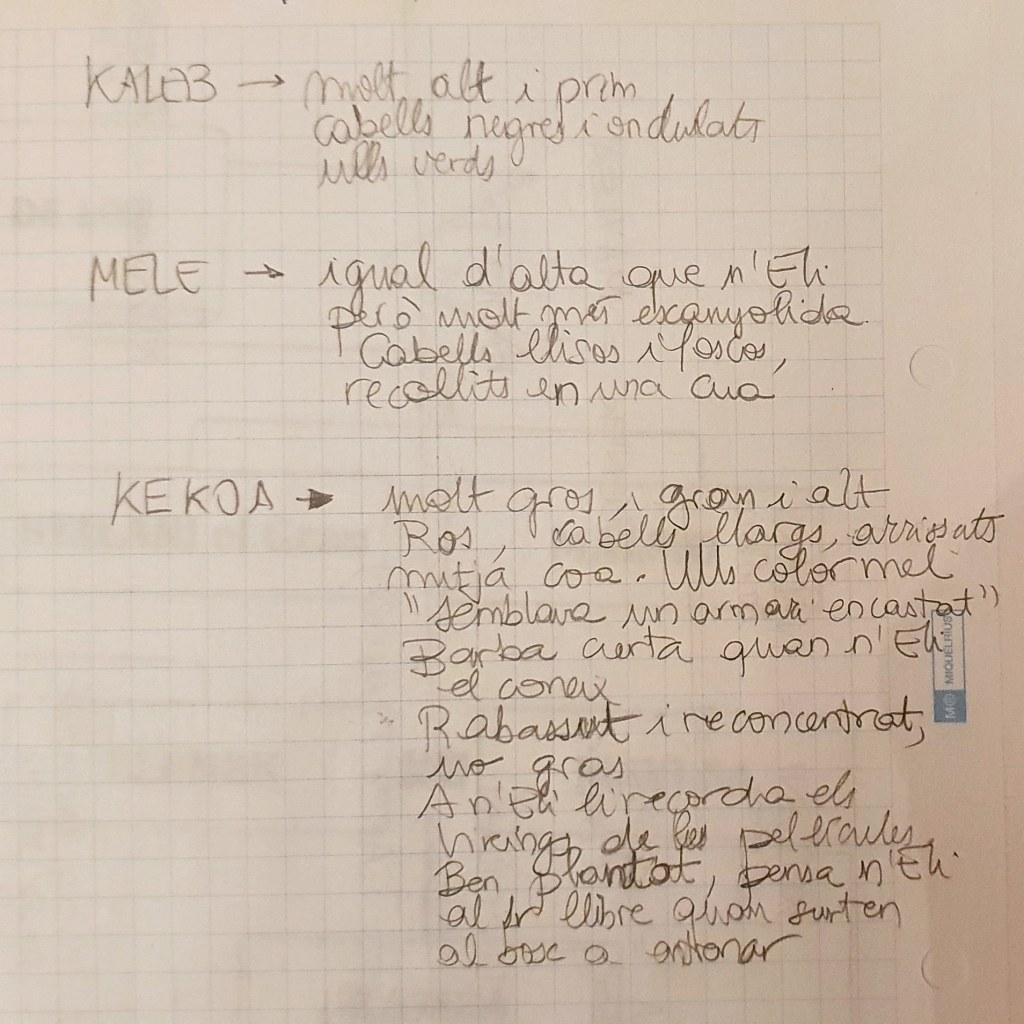 KALEB → molt alt i prim
cabells negres i ondulats
ulls verds
MELE → igual d'alta que n'Eli
però molt més escanyolida.
Cabells llisos i foscos,
recollits en una cua
KEKOA → molt gros, i gran i alt
Ros, cabells llargs, arrissats
mitjà coa. Ulls color mel
"semblava un armari encastat"
Barba curta quan n'Eli
el coneix
Rabassut i reconcentrat,
no gras
A n'Eli li recorda els
vikings de les pel·lícules
Ben plantat, pensa n'Eli
al llibre quan surten
al bosc a
MIQUELRIUS